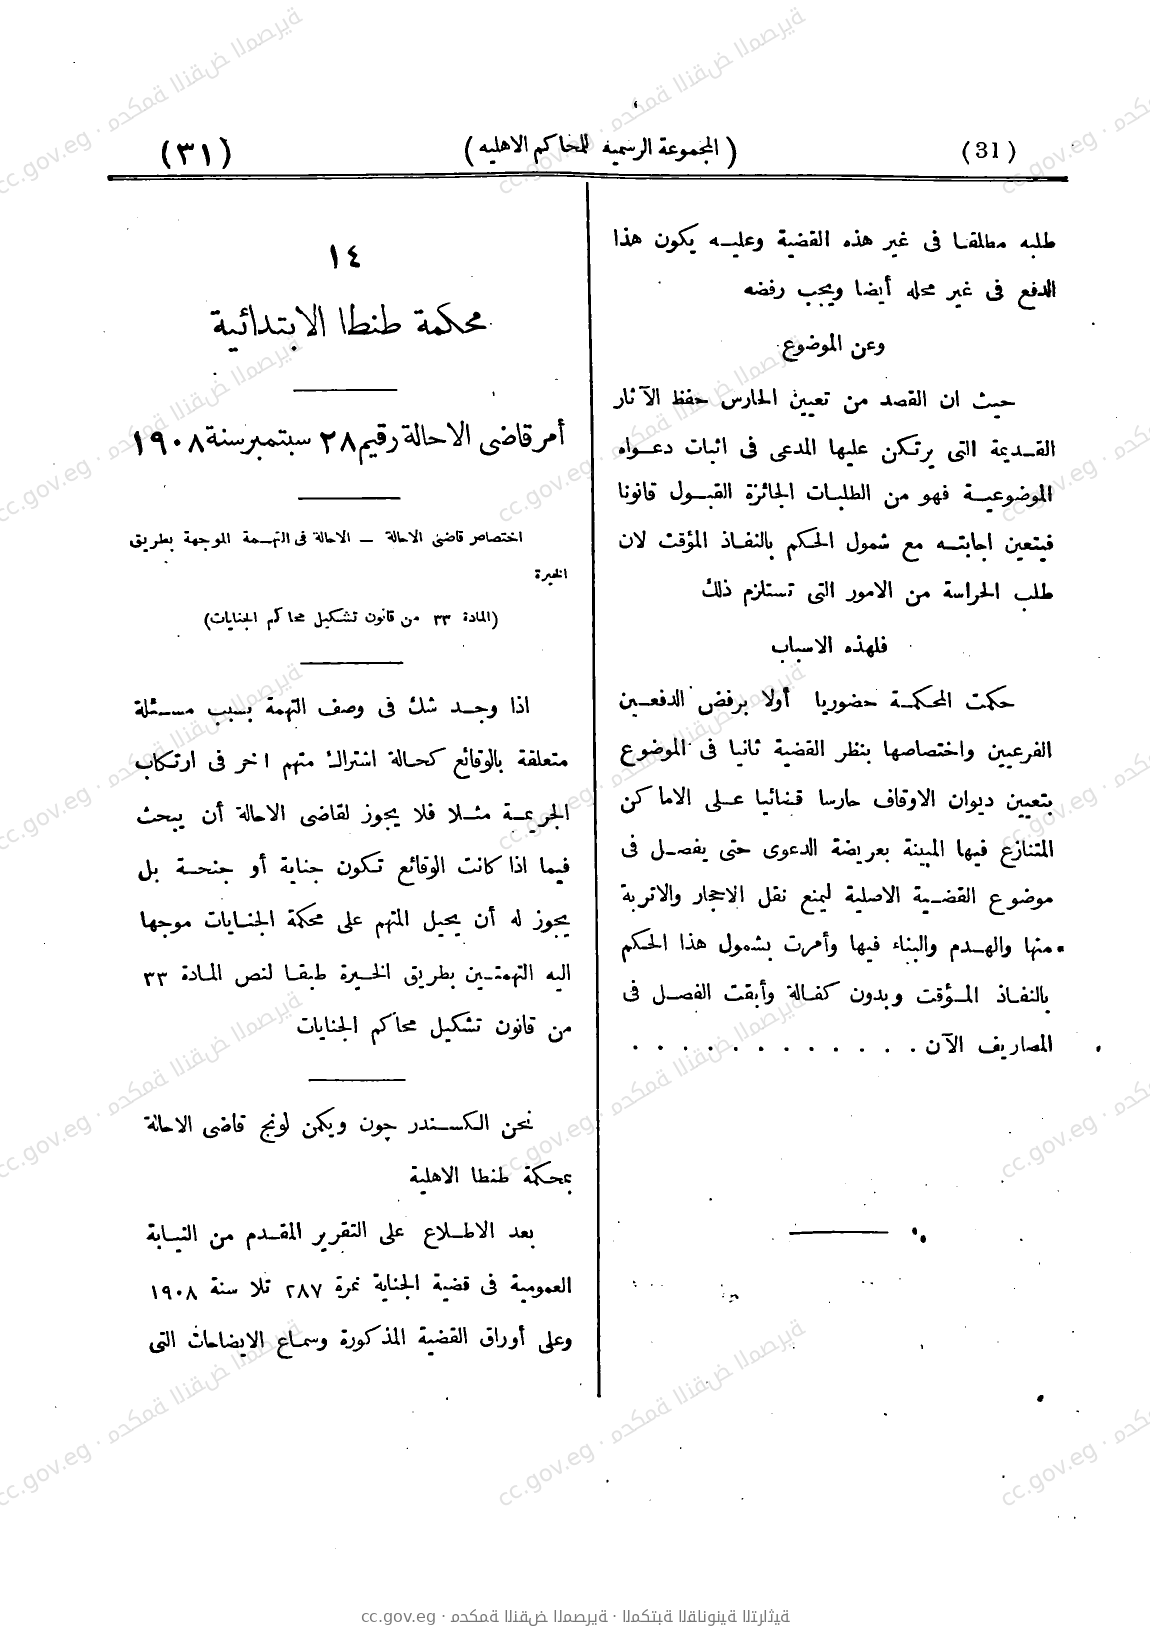 (31) ( المجموعة الرسمية للمحاكم الاهليه ) (٣١)
طلبه مطلقا فى غير هذه القضية وعليه يكون هذا
الدفع فى غير محله أيضا ويجب رفضه
وعن الموضوع
حيث ان القصد من تعيين الحارس حفظ الآثار
القديمة التى يرتكن عليها المدعى فى اثبات دعواه
الموضوعية فهو من الطلبات الجائزة القبول قانونا
فيتعين اجابته مع شمول الحكم بالنفاذ المؤقت لان
طلب الحراسة من الامور التى تستلزم ذلك
فلهذه الاسباب
حكمت المحكمة حضوريا أولا برفض الدفعين
الفرعيين واختصاصها بنظر القضية ثانيا فى الموضوع
بتعيين ديوان الاوقاف حارسا قضائيا على الاماكن
المتنازع فيها المبينة بعريضة الدعوى حتى يفصل فى
موضوع القضية الاصلية ليمنع نقل الاحجار والاتربة
منها والهدم والبناء فيها وأمرت بشمول هذا الحكم
بالنفاذ المؤقت وبدون كفالة وأبقت الفصل فى
المصاريف الآن . . . . . . . . . . . .
١٤
محكمة طنطا الابتدائية
أمر قاضى الاحالة رقيم ٢٨ سبتمبر سنة ١٩٠٨
اختصاص قاضى الاحالة — الاحالة فى التهمة الموجهة بطريق
الخيرة
(المادة ٣٣ من قانون تشكيل محاكم الجنايات)
اذا وجد شك فى وصف التهمة بسبب مسئلة
متعلقة بالوقائع كحالة اشتراك متهم اخر فى ارتكاب
الجريمة مثلا فلا يجوز لقاضى الاحالة أن يبحث
فيما اذا كانت الوقائع تكون جناية أو جنحة بل
يجوز له أن يحيل المتهم على محكمة الجنايات موجها
اليه التهمتين بطريق الخيرة طبقا لنص المادة ٣٣
من قانون تشكيل محاكم الجنايات
نحن الكسندر چون ويكمن لونج قاضى الاحالة
بمحكمة طنطا الاهلية
بعد الاطلاع على التقرير المقدم من النيابة
العمومية فى قضية الجناية نمرة ٢٨٧ تلا سنة ١٩٠٨
وعلى أوراق القضية المذكورة وسماع الايضاحات التى
cc.gov.eg · محكمة النقض المصرية · المكتبة القانونية التراثية